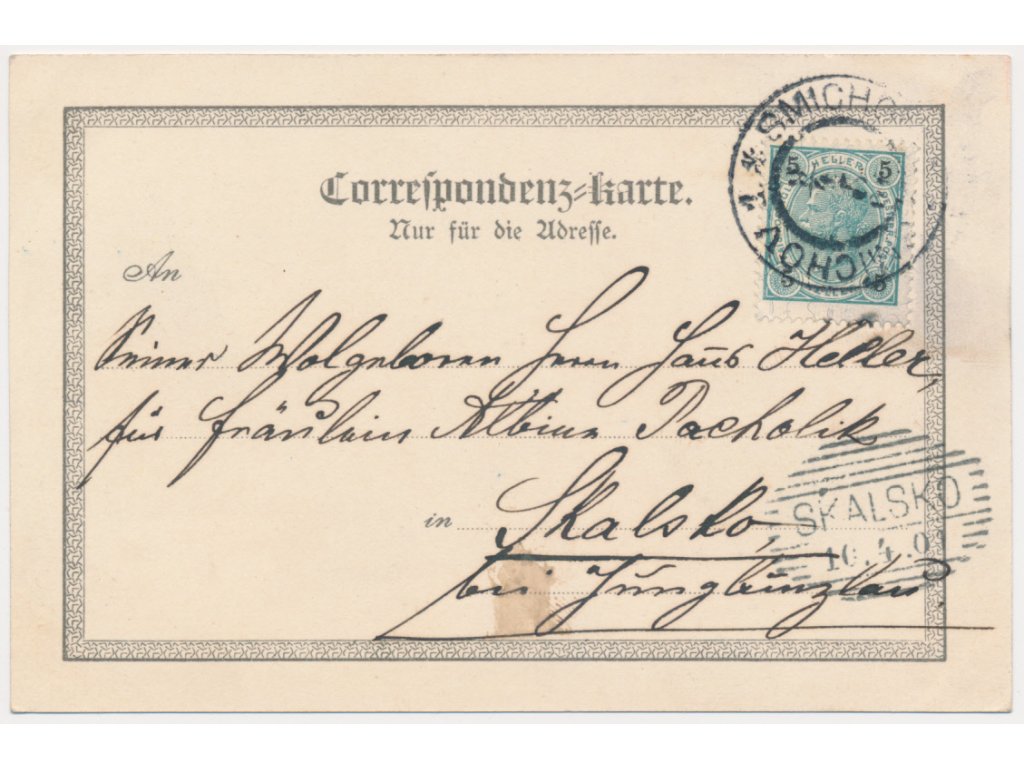 SMICHO
MICHOV 1.
5 HELLER 5
5 5
Correspondenz-Karte.
Nur für die Adresse.
An
Seiner Wolgeboren Herrn Hans Heller,
für Fräulein Albine Pacholik
in Skalsko,
SKALSKO
10.4.0
bei Jungbunzlau.